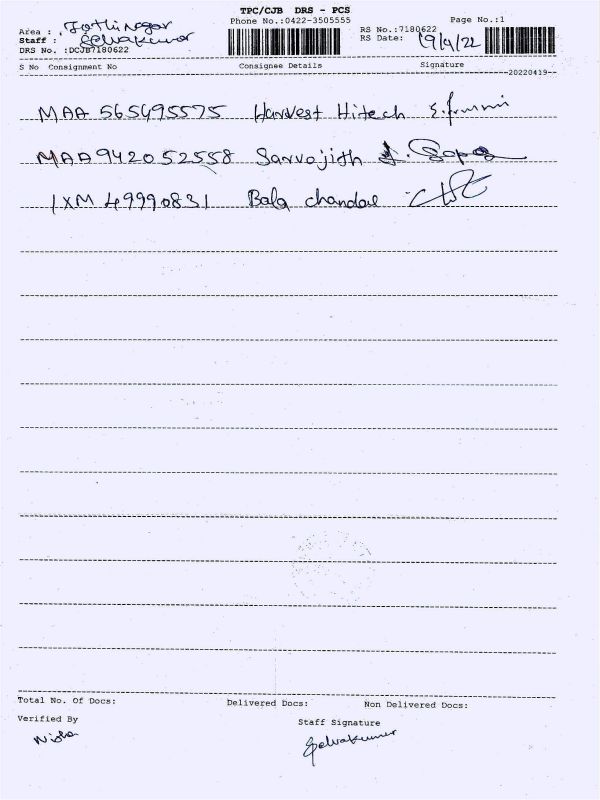 TPC/CJB DRS - PCS
Phone No.:0422-3505555
Page No.:1
Area : Jothinagar
Staff : Selvakumar
DRS No. :DCJB7180622
RS No.:7180622
RS Date: 19/4/22
S No Consignment No Consignee Details Signature
20220419
MAA 565495575 Harvest Hitech
MAA942052558 Sarvojith
IXM 49990831 Bala chandar
Total No. Of Docs: Delivered Docs: Non Delivered Docs:
Verified By Staff Signature
Nisha Selvakumar